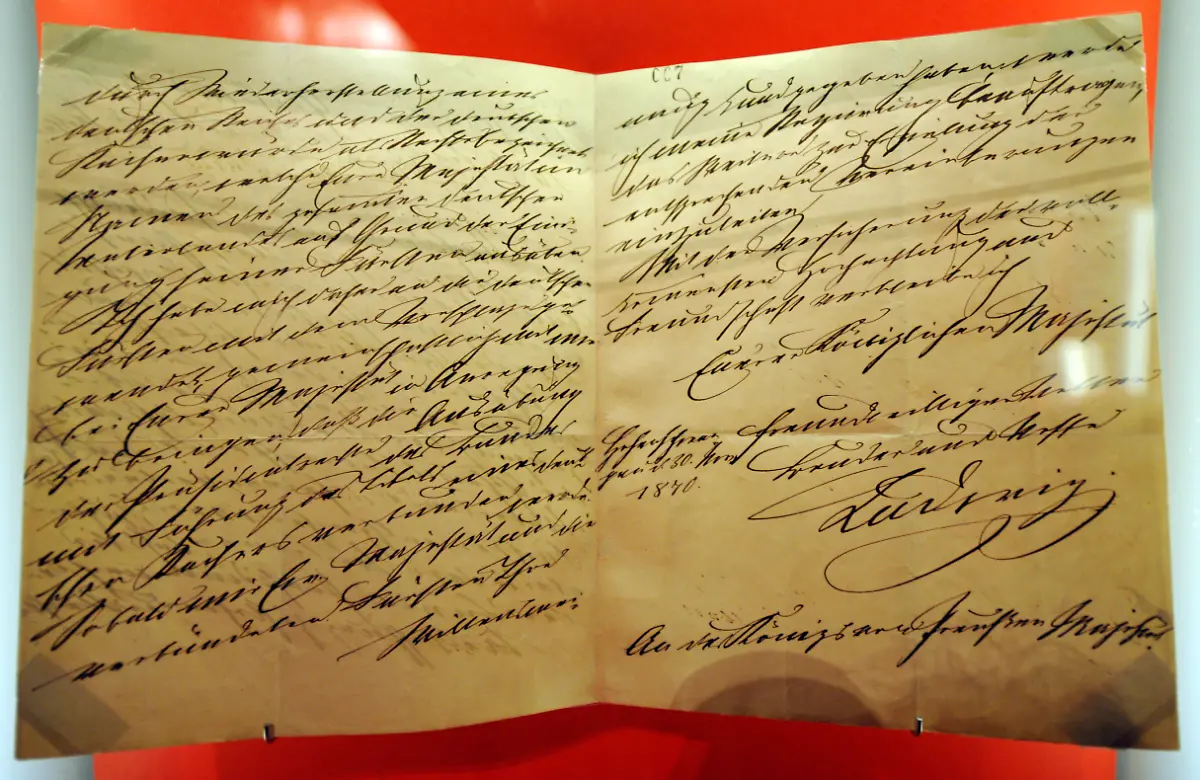 durch Wiederherstellung eines
deutschen Reiches und der deutschen
Kaiserwürde als Rechte bezeichnet
werden, welche Eure Majestät im
Namen des gesamten deutschen
Vaterlandes auf Grund der Eini-
gung seiner Fürsten ausüben.
Ich habe mich daher an die deutschen
Fürsten mit dem Vorschlage ge-
wendet, gemeinschaftlich mit mir
bei Eurer Majestät in Anregung
zu bringen, daß die Ausübung
der Präsidialrechte des Bundes
mit Führung des Titels eines deut-
schen Kaisers verbunden werde.
Sobald mir Eure Majestät und die
verbündeten Fürsten Ihre
Willensmei-
nung kundgegeben haben, werde
ich meine Regierung beauftragen,
das Weitere zur Erzielung der
entsprechenden Vereinbarungen
einzuleiten.
Mit der Versicherung der voll-
kommensten Hochachtung und
Freundschaft verbleibe ich
Euerer Königlichen Majestät
freundwilliger Vetter
Bruder und Neffe
Ludwig.
Hohenschwan-
gau d. 30. Nov
1870.
An des Königs von Preußen Majestät.